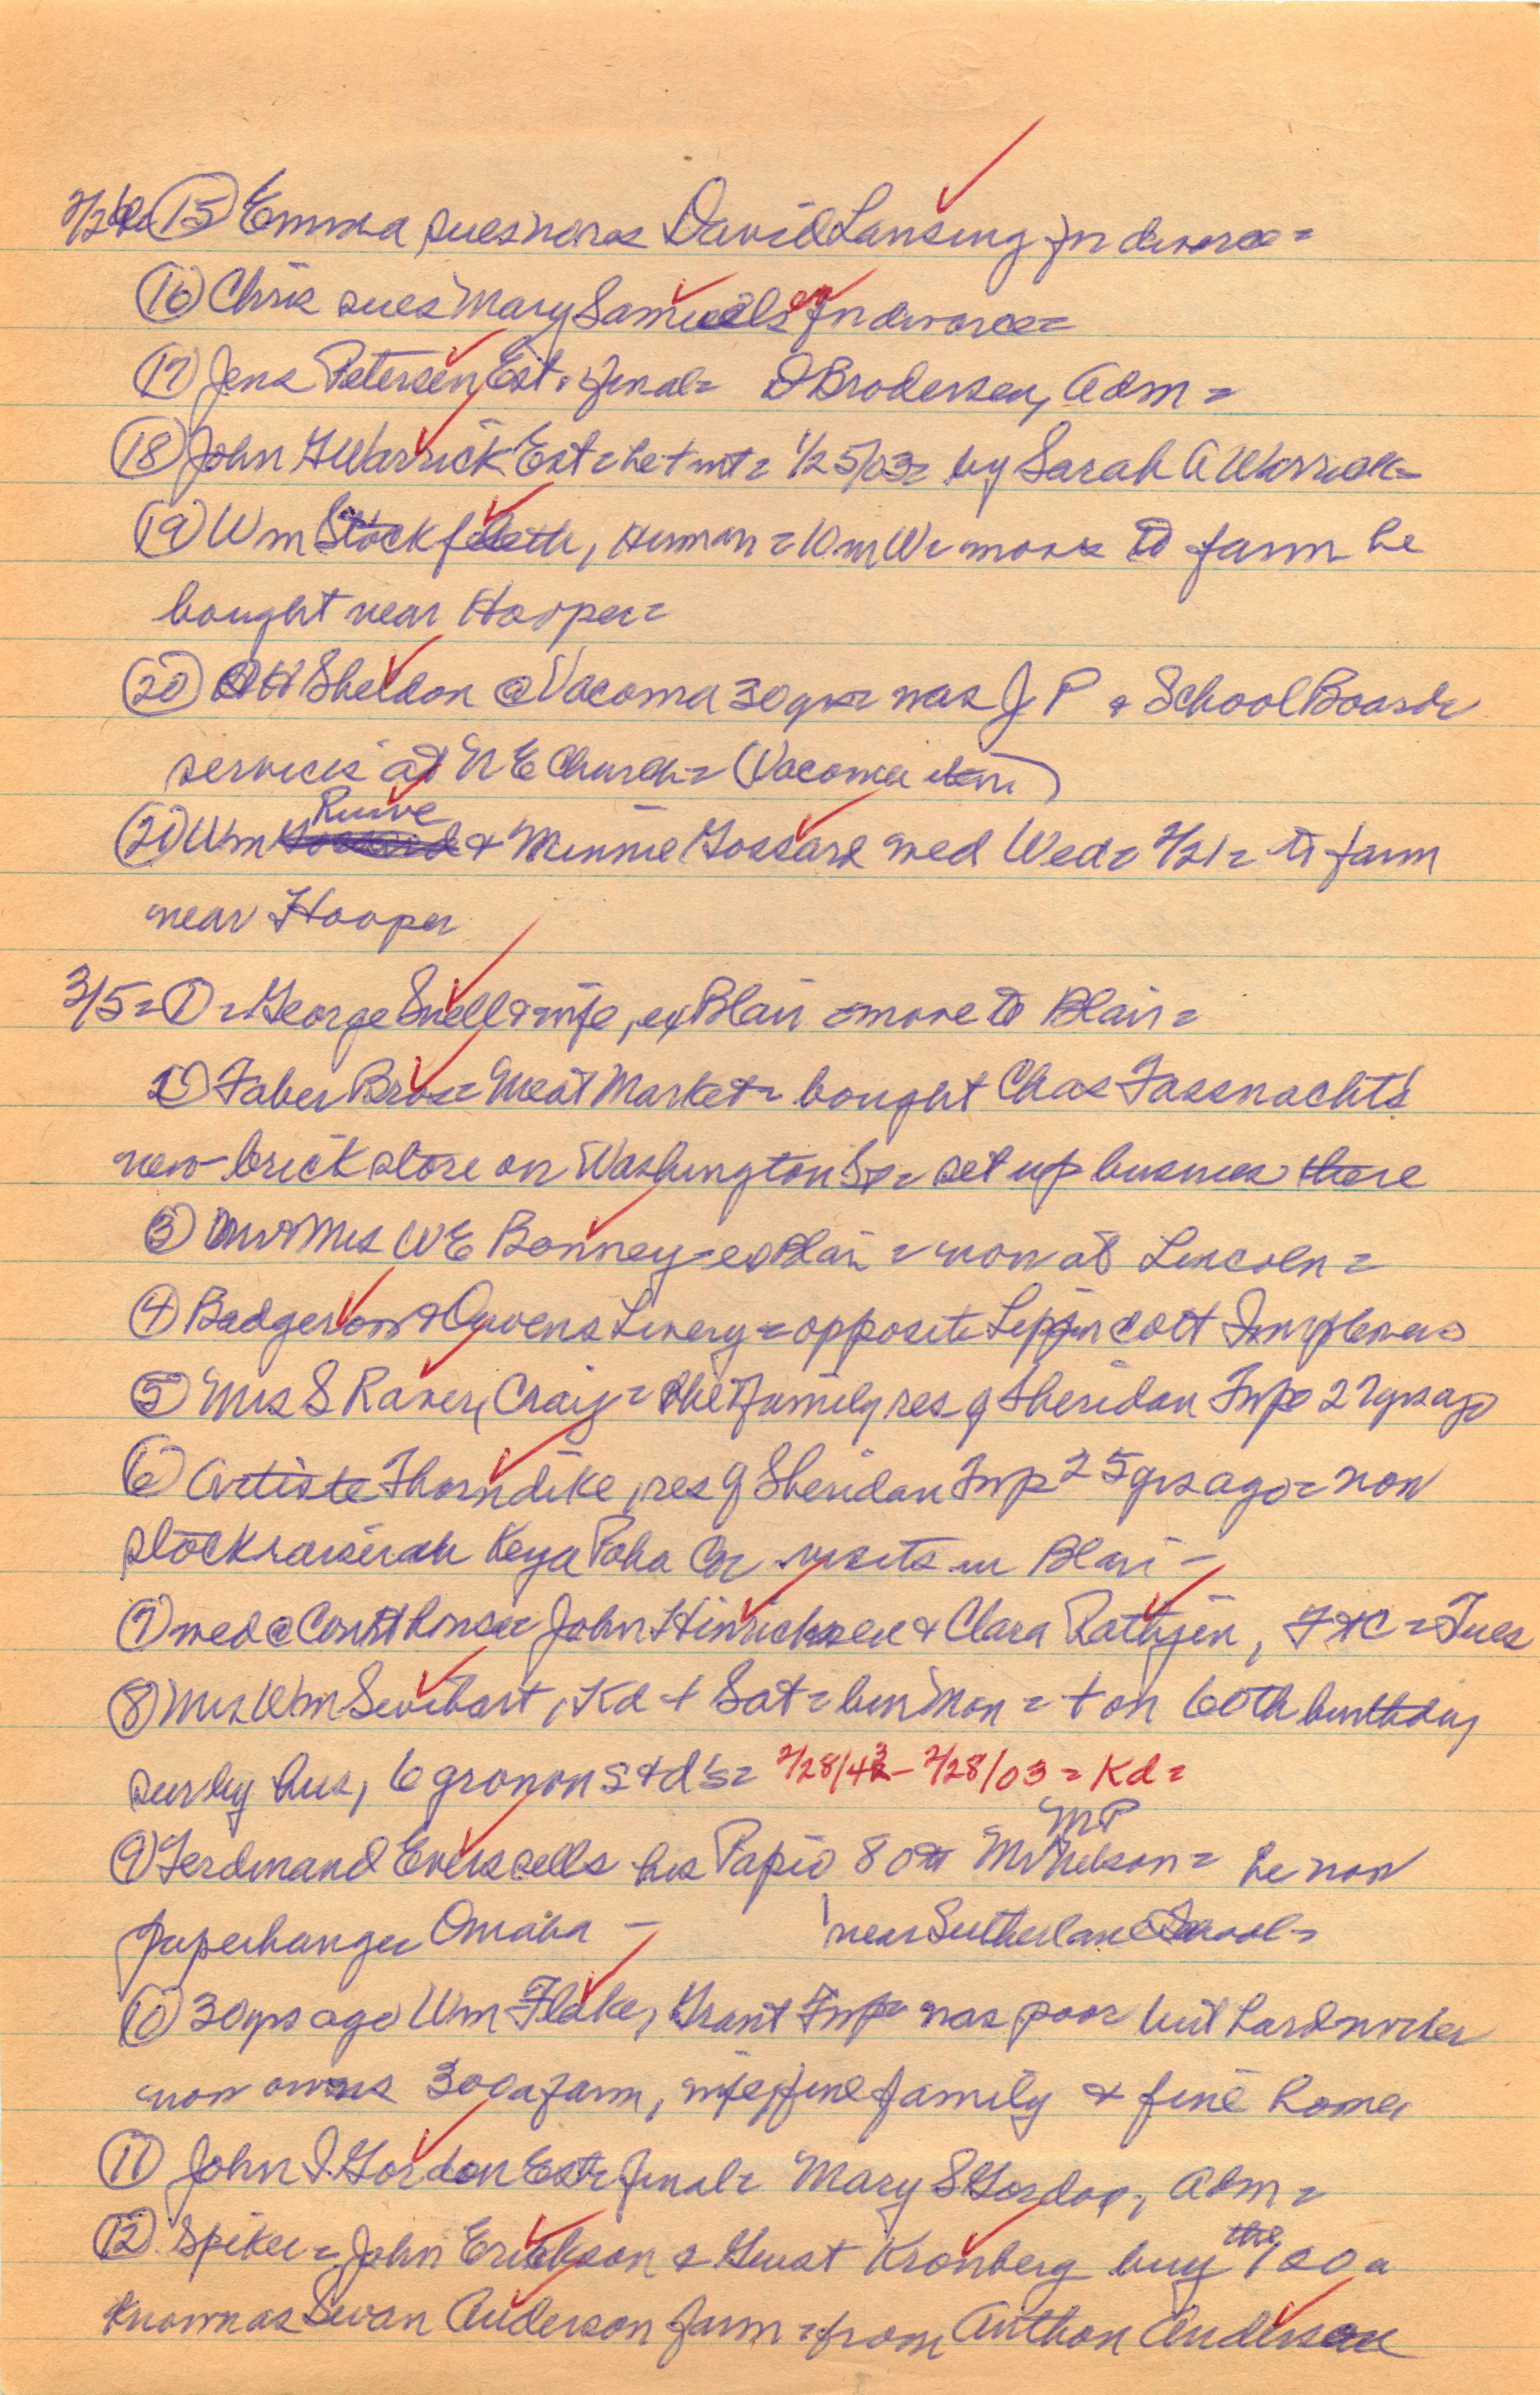 2/26= (15) Emma sues David Lansing for divorce=
(16) Chris sues Mary Samuels for divorce=
(17) Jens Petersen Est. final= Brodersen, Adm=
(18) John H Warrick Est= 1/25/03= by Sarah A Warrick=
(19) Wm Stockfleth, Herman= move to farm he
bought near Hooper=
(20) H Sheldon @ Vacoma 30 yrs= was J P & School Board=
services at M E Church= (Vacoma item)
Ruwe
(21) Wm & Minnie Gossard wed Wed= 2/21= to farm
near Hooper
3/5= (1)= George Snell & wife, ex Blair =move to Blair=
(2) Faber Bros= Meat Market= bought Chas Fassnacht's
new brick store on Washington St= set up business there
(3) Mr & Mrs W E Bonney= ex Blair = now at Lincoln=
(4) Badgerow & Owens Livery= opposite Lippincott
(5) Mrs S Raver, Craig= she & family res of Sheridan Twp 27 yrs ago
(6) Artiste Thorndike, res of Sheridan Twp 25 yrs ago= now
stockraiser in Keya Paha Co= visits in Blair-
(7) wed @ Courthouse= John Hinrichsen & Clara Rathjen, F C= Tues
(8) Mrs Wm Swihart, Kd + Sat= bur Mon= + on 60th birthday
sur by hus, 6 grown s & d's= 2/28/43- 2/28/03= Kd=
M P
(9) Ferdinand Evers sells his Papio 80 to Nelson= he now
paperhanger Omaha - near Sutherland School=
(10) 30 yrs ago Wm Flake, Grant Twp= was poor but hardworker
now owns 300a farm, wife, fine family & fine home
(11) John S. Gordon Est= final= Mary S Gordon, Adm=
(12) Spiker= John Erickson & Gust Kronberg buy the 160 a
known as Swan Anderson farm= from Anthon Anderson